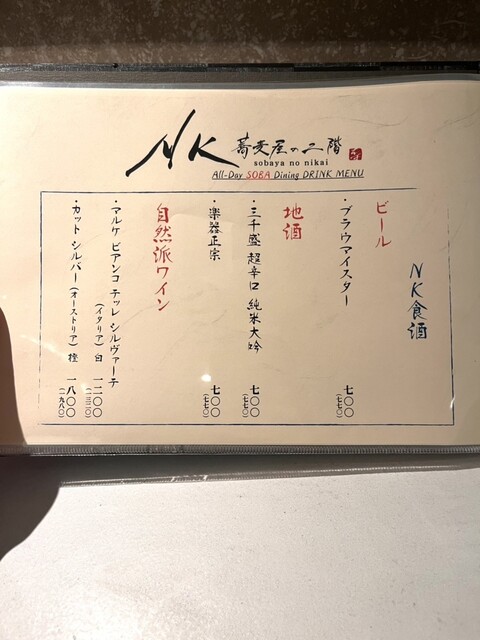 NK 蕎麦屋の二階
sobaya no nikai
All-Day SOBA Dining DRINK MENU
NK食酒
ビール
・ブラウマイスター 七〇〇
（七七〇）
地酒
・三千盛 超辛口 純米大吟 七〇〇
（七七〇）
・楽器正宗 七〇〇
（七七〇）
自然派ワイン
・マルケ ビアンコ テッレ シルヴァーテ
（イタリア）白 一二〇〇
（一三二〇）
・カット シルバー（オーストリア）橙 一八〇〇
（一九八〇）